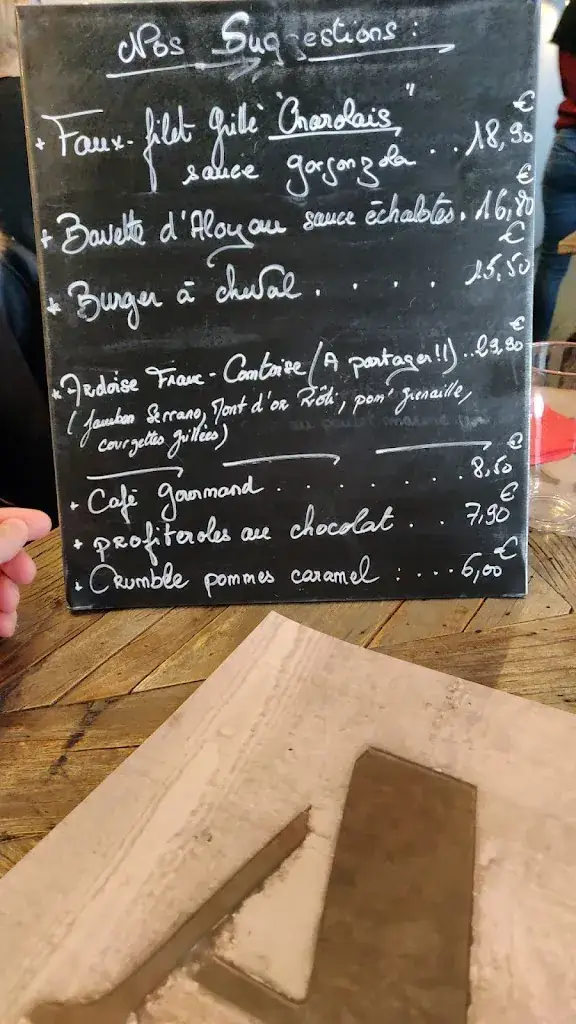 Nos Suggestions :
+ Faux-filet grillé "Charolais"
sauce gorgonzola .. 18,90 €
+ Bavette d'Aloyau sauce échalotes. 16,80 €
* Burger à cheval . . . . 15,50 €
* Ardoise Franc-Comtoise (A partager!!) .. 29,90 €
(Jambon Serrano, Mont d'or Rôti, pom' grenaille,
courgettes grillées)
+ Café gourmand . . . . . . . 8,50 €
+ profiteroles au chocolat . . 7,90 €
+ Crumble pommes caramel : .... 6,00 €
A